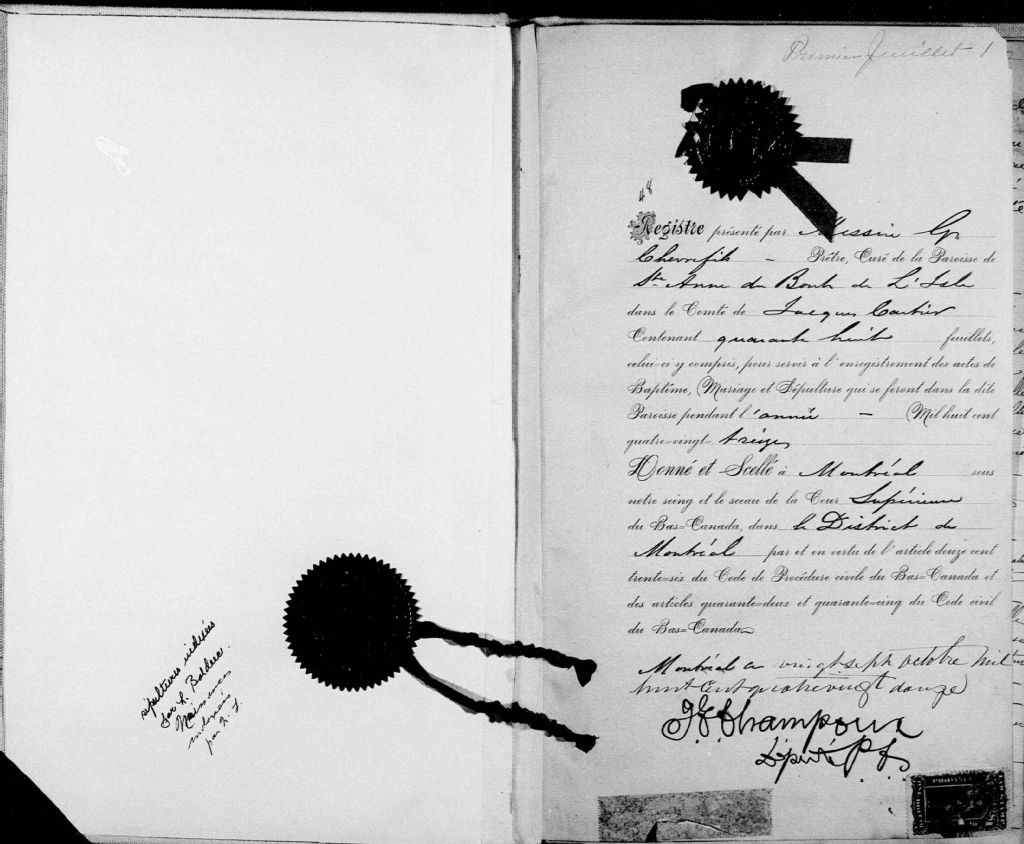 sépultures indexées
par L. Bolduc
Naissances
indexées
par
Premier feuillet 1
48
Registre présenté par Messire G.
Chevrefils – Prêtre, Curé de la Paroisse de
Ste Anne du Bout de L'Isle
dans le Comté de Jacques Cartier
Contenant quarante huit feuillets,
celui-ci y compris, pour servir à l'enregistrement des actes de
Baptême, Mariage et Sépulture qui se feront dans la dite
Paroisse pendant l'année – Mil huit cent
quatre=vingt= treize
Donné et Scellé à Montréal sous
notre seing et le sceau de la Cour Supérieure
du Bas=Canada, dans le District de
Montréal par et en vertu de l'article douze cent
trente=six du Code de Procédure civile du Bas=Canada et
des articles quarante=deux et quarante=cinq du Code civil
du Bas=Canada
Montréal ce vingt sept octobre mil
huit cent quatre vingt douze
Champoux
Député P.